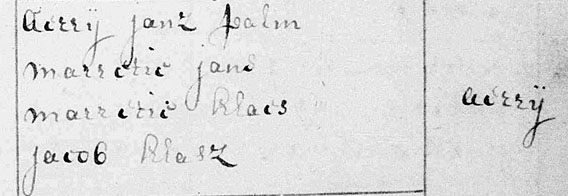 aerrÿ janz palm
marretie jans
marretie klaes
jacob klasz
aerrÿ